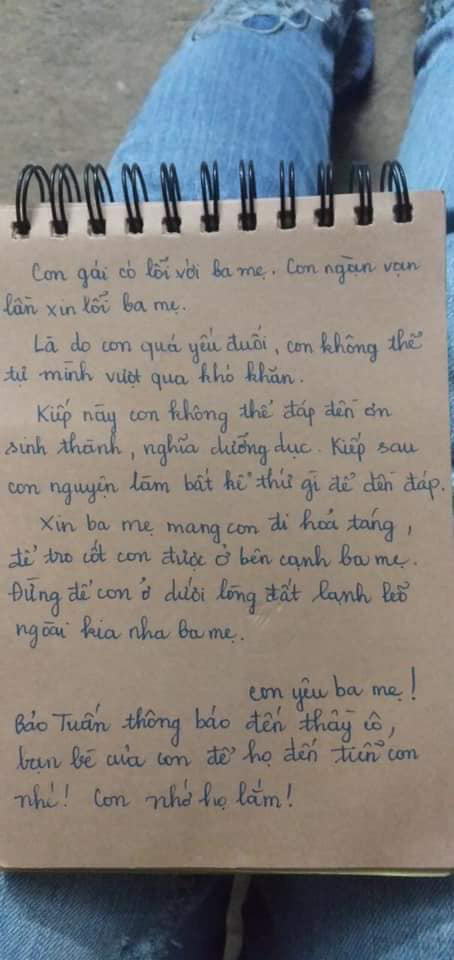 Con gái có lỗi với ba mẹ. Con ngàn vạn
lần xin lỗi ba mẹ.
Là do con quá yếu đuối, con không thể
tự mình vượt qua khó khăn.
Kiếp này con không thể đáp đền ơn
sinh thành, nghĩa dưỡng dục. Kiếp sau
con nguyện làm bất kể thứ gì để đền đáp.
Xin ba mẹ mang con đi hoả táng,
để tro cốt con được ở bên cạnh ba mẹ.
Đừng để con ở dưới lòng đất lạnh lẽo
ngoài kia nha ba mẹ.
Con yêu ba mẹ!
Bảo Tuấn thông báo đến thầy cô,
bạn bè của con để họ đến tiễn con
nhé! Con nhớ họ lắm!